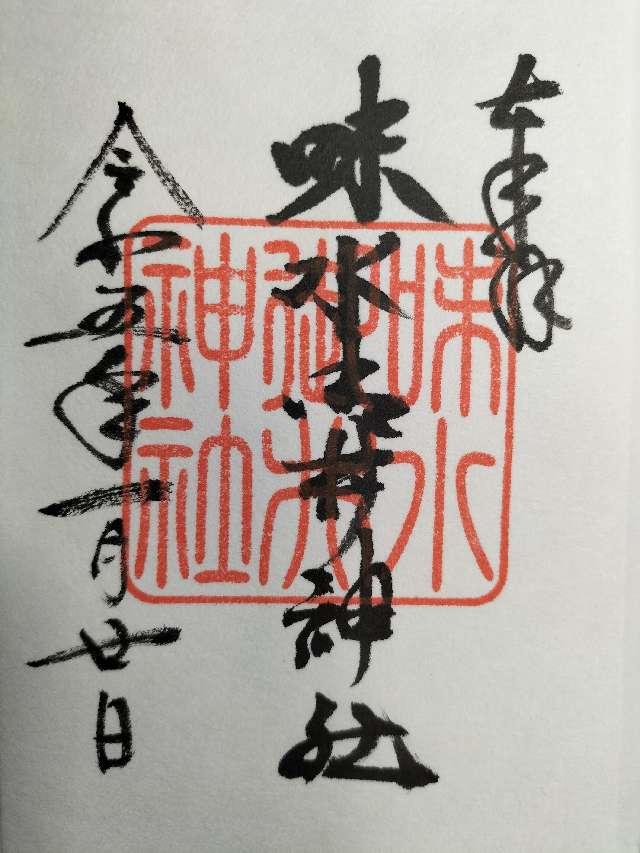 奉拝
味水御井神社
令和五年一月廿日
味水
御井
神社